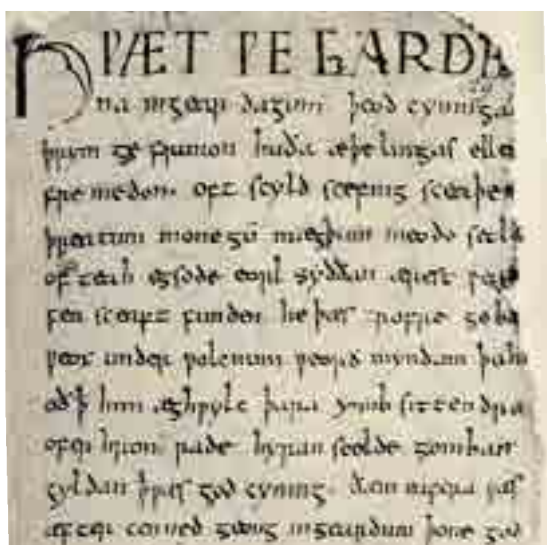 HǷÆT ǷE GARDE
na ingear dagum þeod cyninga
þrym ge frunon huða æþelingas elle
fremedon. oft scyld scefing sceaþen
þreatum monegū mægþum meodo setla
of teah egsode eorl syððan ærest ƿear
fea sceaft funden he þæs frofre geba
ƿeox under ƿolcnum ƿeorð myndum þah
oð ꝥ him æghƿylc þara ymb sittendra
ofer hron rade hyran scolde gomban
gyldan ꝥ ƿæs god cyning. ðæm eafera ƿæs
æfter cenned geong ingeardum þone god